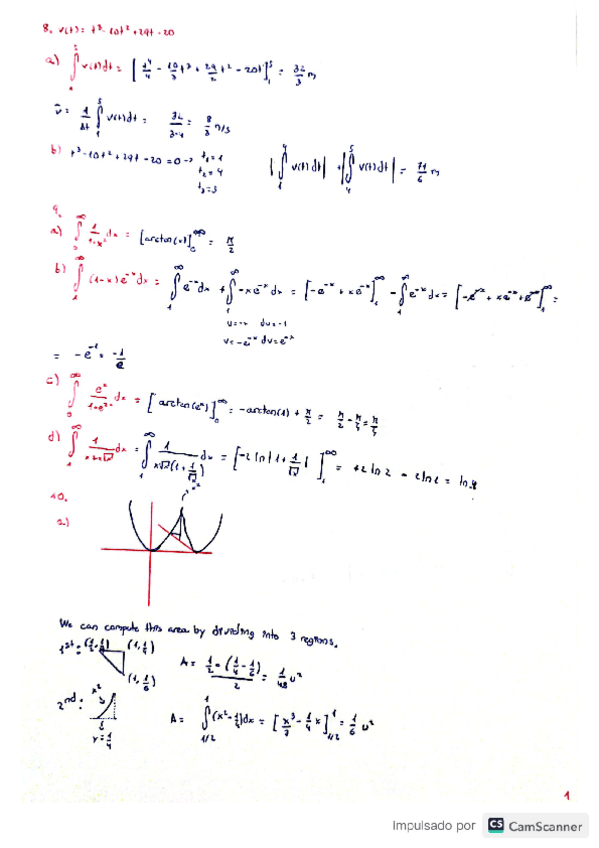 8. v(t) = t³ - 10t² + 29t - 20
a) ∫₁⁵ v(t)dt = [t⁴/4 - 10/3 t³ + 29/2 t² - 20t]₁⁵ = 32/3 m
v̄ = 1/Δt ∫₁⁵ v(t)dt = 32/3·4 = 8/3 m/s
b) t³ - 10t² + 29t - 20 = 0 → t₁ = 1
t₂ = 4
t₃ = 5
|∫₁⁴ v(t)dt| + |∫₄⁵ v(t)dt| = 71/6 m
9.
a) ∫₀^∞ 1/1+x² dx = [arctan(x)]₀^∞ = π/2
b) ∫₁^∞ (1-x)e⁻ˣdx = ∫₁^∞ e⁻ˣdx + ∫₁^∞ -xe⁻ˣdx = [-e⁻ˣ + xe⁻ˣ]₁^∞ - ∫₁^∞ e⁻ˣdx = [-e⁻ˣ + xe⁻ˣ + e⁻ˣ]₁^∞ =
u = -x du = -1
v = -e⁻ˣ dv = e⁻ˣ
= -e⁻¹ = -1/e
c) ∫₀^∞ eˣ/1+e²ˣ dx = [arctan(eˣ)]₀^∞ = -arctan(1) + π/2 = π/2 - π/4 = π/4
d) ∫₁^∞ 1/x+x√x dx = ∫₁^∞ 1/x√x(1+1/√x) dx = [-2 ln|1+1/√x|]₁^∞ = +2 ln 2 = 2 ln 2 = ln 4
10.
a)
We can compute this area by dividing into 3 regions.
1st: (1/2, 1/4) (1, 1/4)
(1, 1/6)
A = 1/2 · (1/4 - 1/6) / 2 = 1/48 u²
2nd: x²
y = 1/4
A = ∫_{1/2}^1 (x² - 1/4)dx = [x³/3 - 1/4 x]_{1/2}^1 = 1/6 u²
1
Impulsado por CS CamScanner